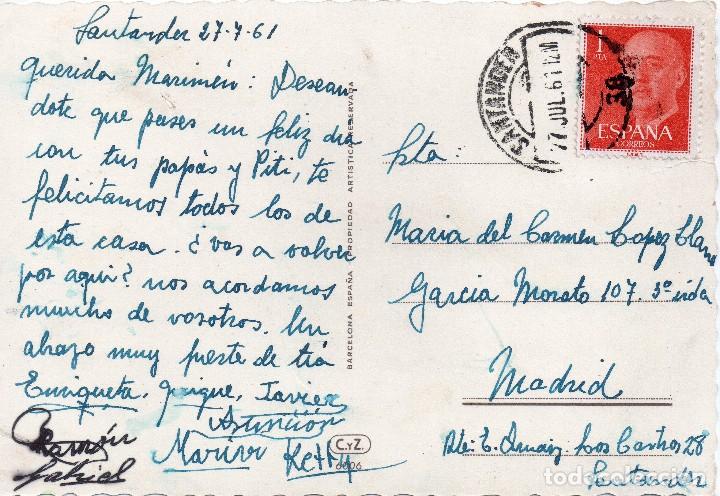 Santander 27-7-61
Querida Marimén: Desean
dote que pases un feliz dia
con tus papás y Piti, te
felicitamos todos los de
esta casa. ¿vas a volver
por aqui? nos acordamos
mucho de vosotros. Un
abrazo muy fuerte de tia
Enriqueta, Quique, Javier
Asunción
Ramón
Gabriel
Mariser Ketty
BARCELONA ESPAÑA PROPIEDAD ARTISTICA RESERVADA
C.yZ.
6006
SANTANDER
27 JUL.61 12M
1
PTA
ESPAÑA
CORREOS
Srta:
Maria del Carmen Lopez
Garcia Morato 107. 3º izda
Madrid
Rte: E. Los Castros 28
Santander
todocoleccion